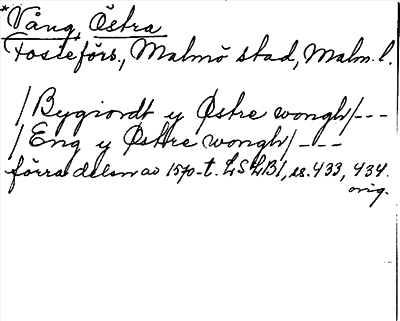 *Vång, Östra
Fosieförs., Malmö stad, Malm. l.
/Bygiordt y Østre wongh/---
/Eng y Østre wongh/---
förra delen av 1570-t. LSLB1, ss. 433, 434.
orig.